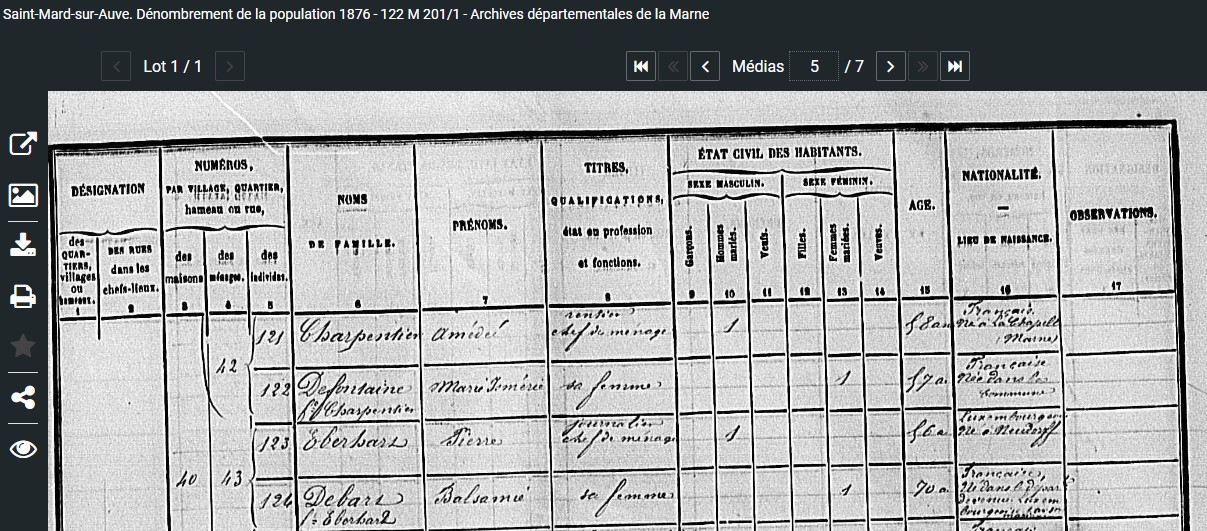 Saint-Mard-sur-Auve. Dénombrement de la population 1876 - 122 M 201/1 - Archives départementales de la Marne
Lot 1 / 1
Médias 5 / 7
DÉSIGNATION
des QUAR-
TIERS,
villages
ou
hameaux.
1
DES RUES
dans les
chefs-lieux.
2
NUMÉROS,
PAR VILLAGE, QUARTIER,
hameau ou rue,
des
maisons
3
des
ménages.
4
des
individus.
5
NOMS
DE FAMILLE.
6
PRÉNOMS.
7
TITRES,
QUALIFICATIONS,
état ou profession
et fonctions.
8
ÉTAT CIVIL DES HABITANTS.
SEXE MASCULIN.
Garçons.
9
Hommes
mariés.
10
Veufs.
11
SEXE FÉMININ.
Filles.
12
Femmes
mariées.
13
Veuves.
14
AGE.
15
NATIONALITÉ.
—
LIEU DE NAISSANCE.
16
OBSERVATIONS.
17
42
121 Charpentier Amédée
rentier
chef de ménage
1
58 an
Français
Né à La Chapelle
Marne
122 Defontaine
fe Charpentier
Marie
sa femme
1
57 a.
Française
Née dans la
commune
40 43
123 Eberhart Pierre
journalier
chef de ménage
1
56 a
Luxembourgeois
Né à
124 Debart
fe Eberhart
Balsamie
sa femme
1
70 a.
Française,
Née dans le
devenue
Française